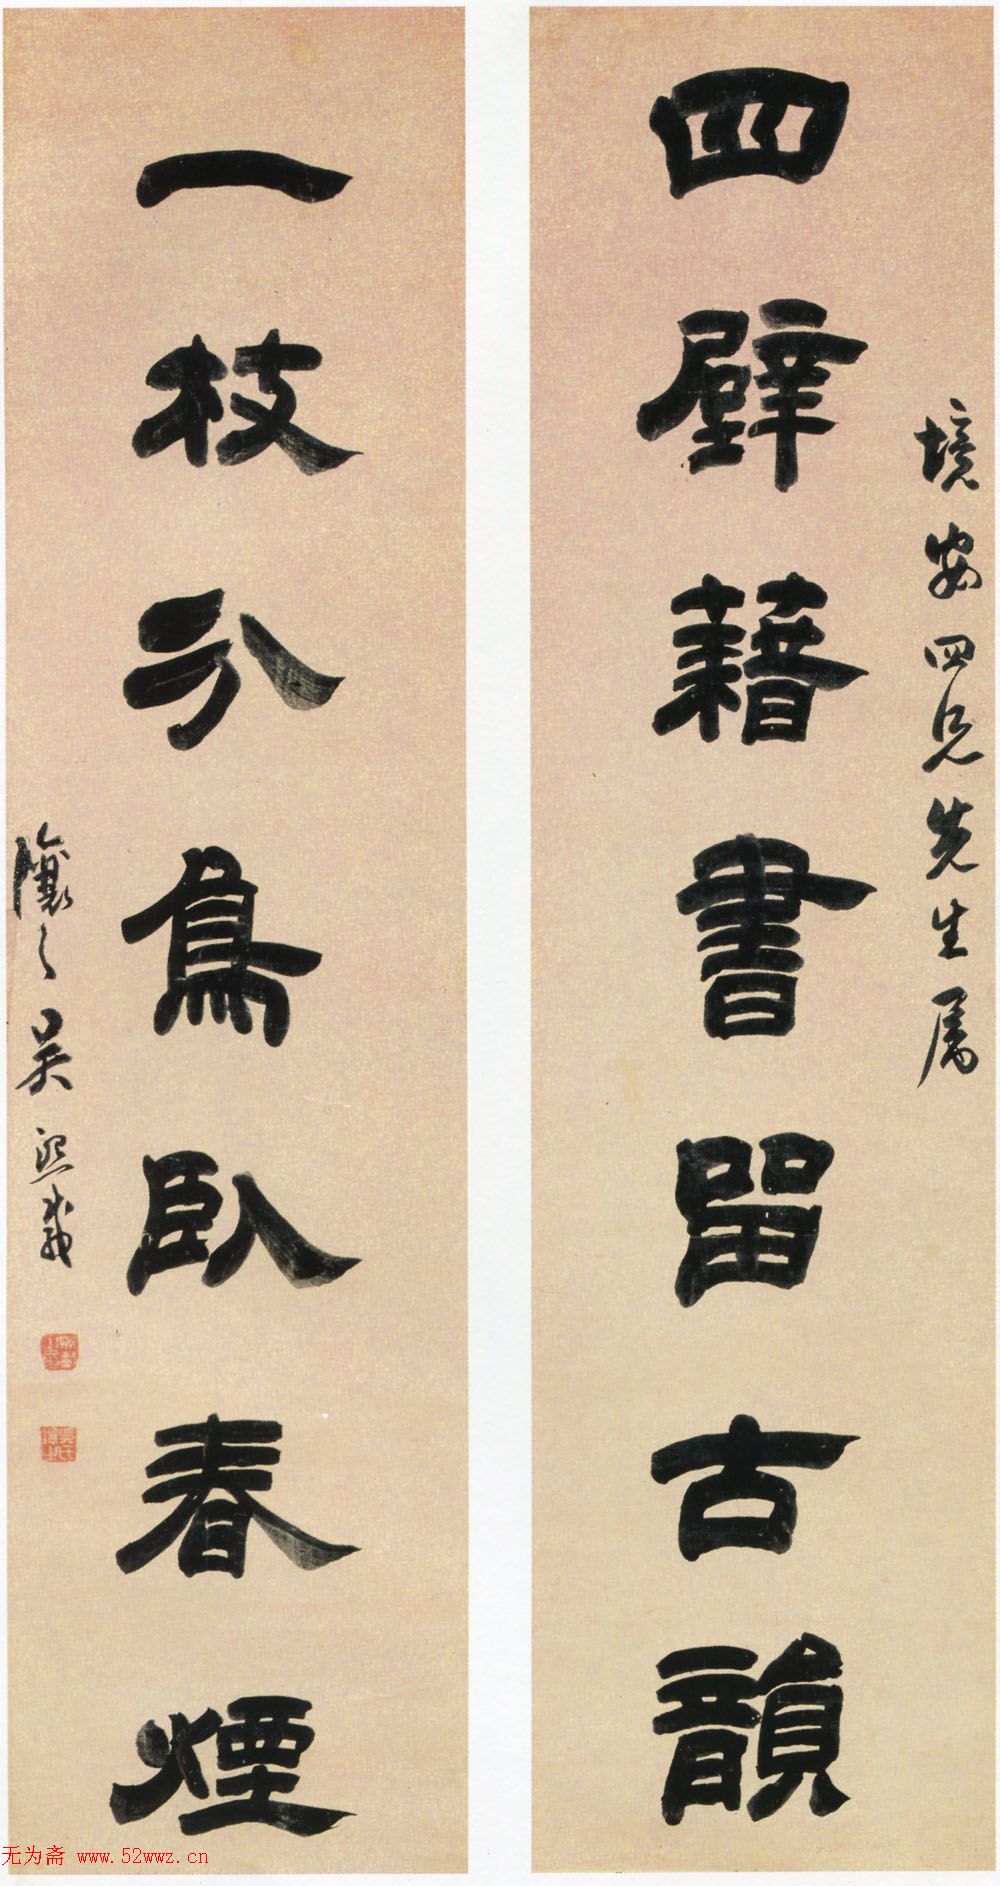 境安四兄先生属
四壁藉書留古韻
一枝分鳥臥春煙
讓之吴熙載
无为斋 www.52wwz.cn